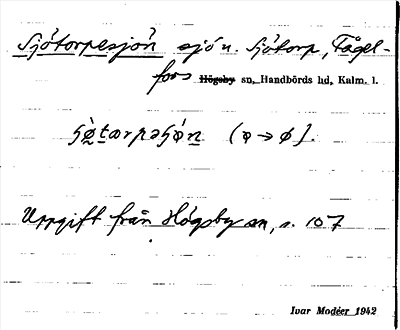 Sjötorpesjön sjö n. Sjötorp, Fågel-
fors Högsby sn, Handbörds hd, Kalm. l.
(ɵ → ø).
Uppgift från Högsby sn, s. 107
Ivar Modéer 1942